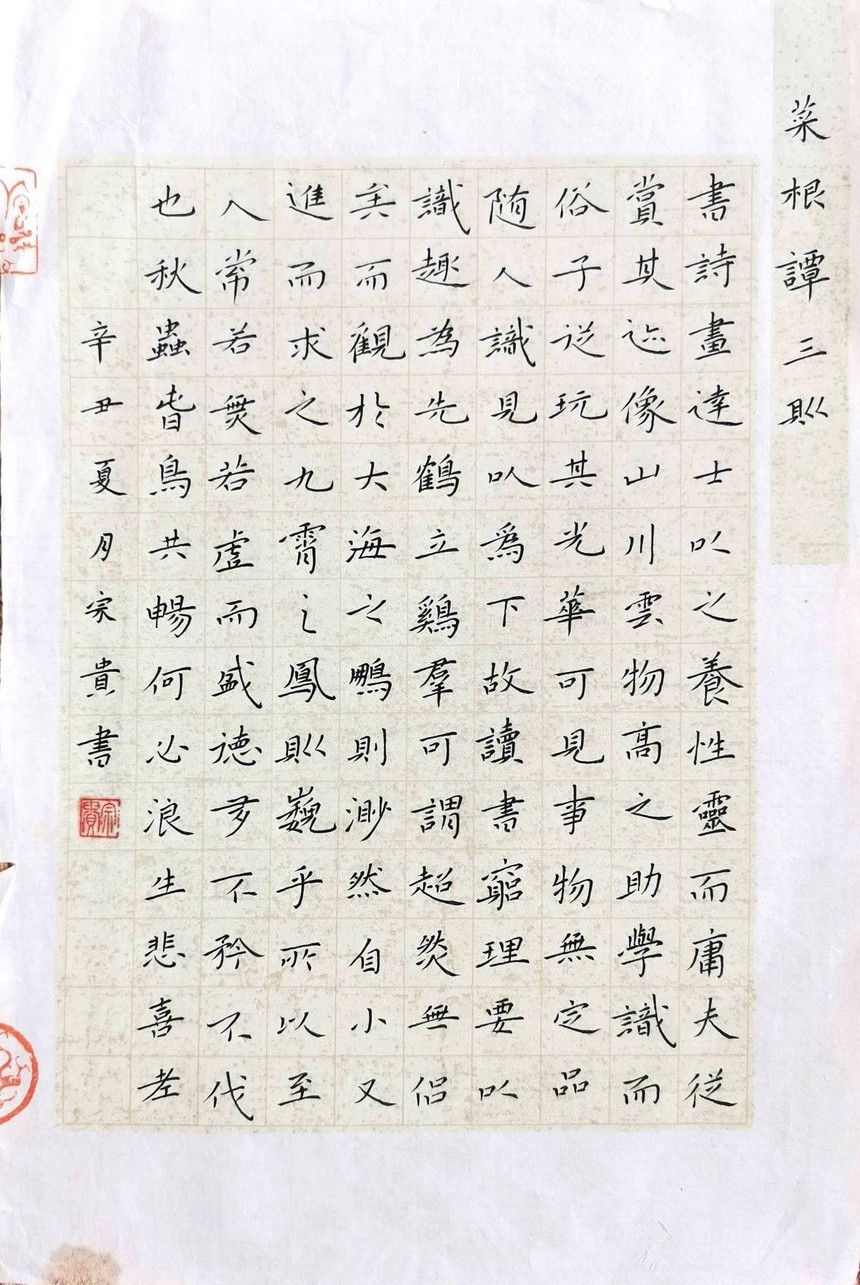 菜根譚三則
書詩畫達士以之養性靈而庸夫從
賞其迹像山川雲物高之助學識而
俗子從玩其光華可見事物無定品
随人識見以爲下故讀書窮理要以
識趣為先鶴立鷄羣可謂超然無侣
矣而觀於大海之鵬則渺然自小又
進而求之九霄之鳳則巍乎所以至
人常若無若虛而盛德多不矜不伐
也秋蟲旹鳥共暢何必浪生悲喜老
辛丑夏月宗貴書
宗貴